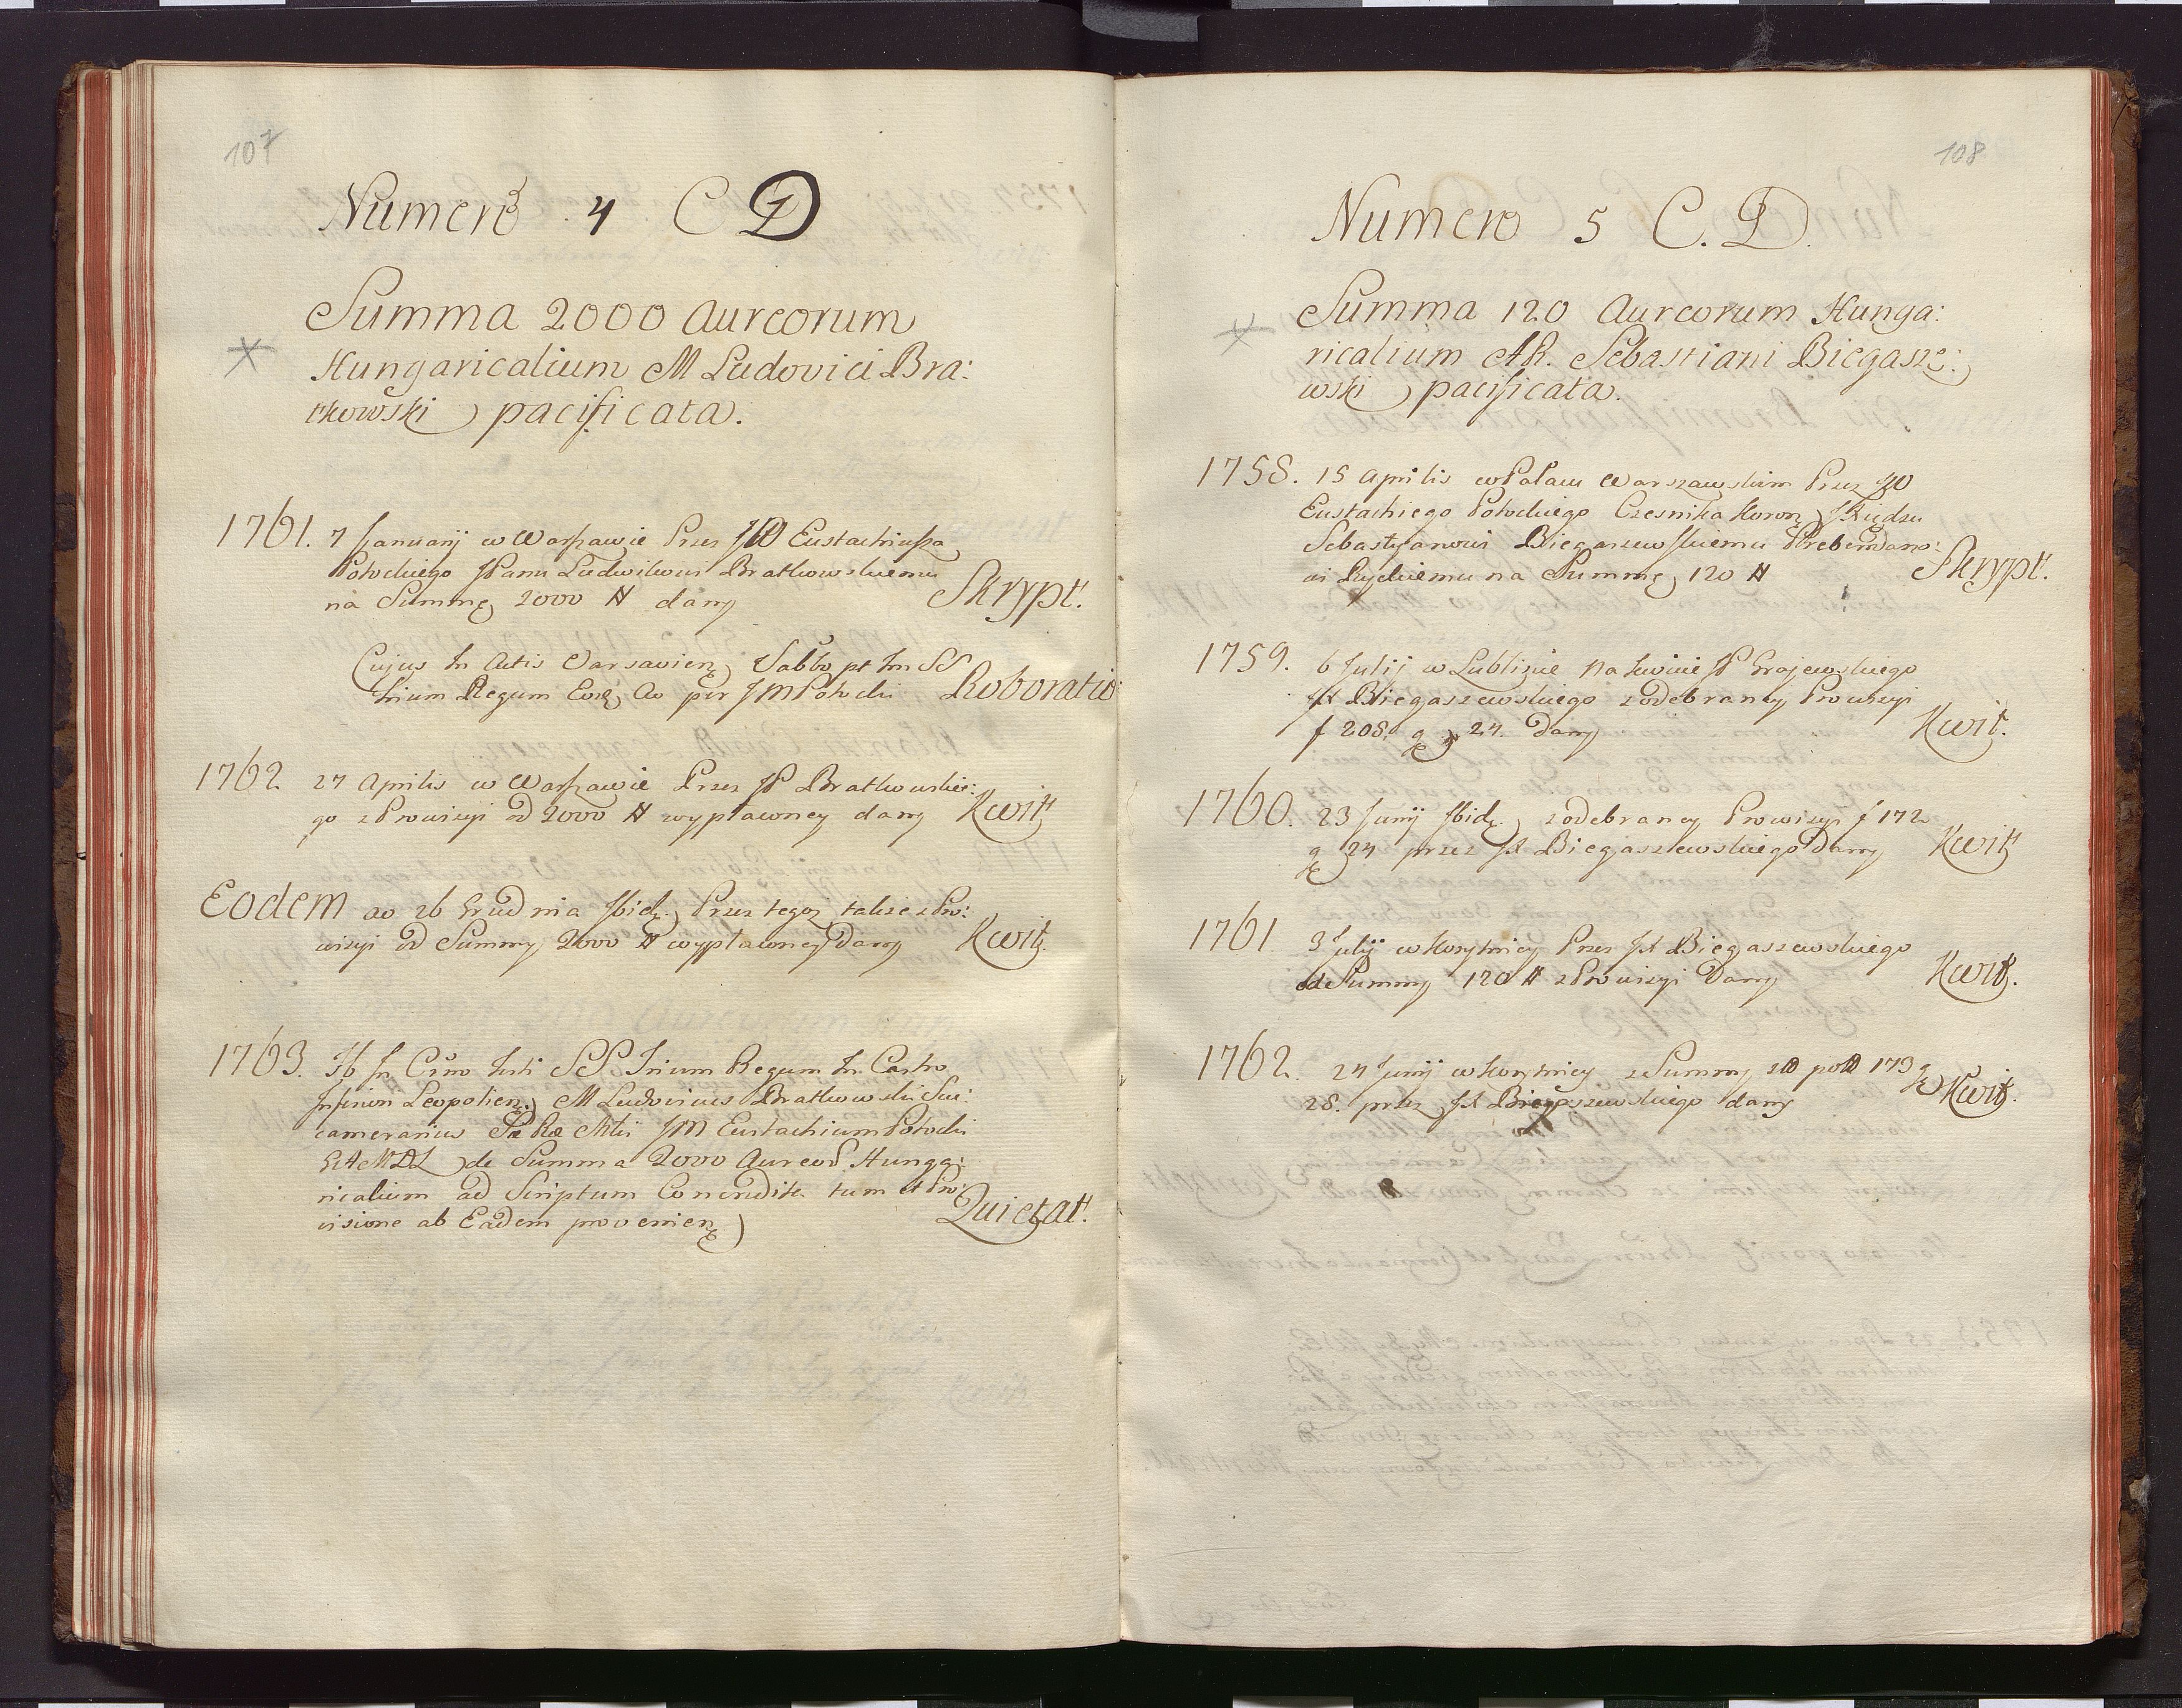 107
Numero 4 C D
Summa 2000 Aureorum
Hungaricalium M Ludovici Bra:
tkowski pacificata.
1761. 7 Januarij w Warszawie Przez JW Eustachiusza
Potockiego JPanu Ludwikowi Bratkowskiemu
na Summę 2000 # dany Skrypt.
Cujus In Actis Varsavien Sabbo pt Im SS
Trium Regum Eodę Ao per JM Potocki Roboratio
1762 27 Aprilis w Warszawie Przez JP Bratkowskie:
go z Prowizyi od 2000 # wypłaconey dany Kwit
Eodem ao 26 Grudnia Ibid. Przez tegoż także z Pro:
wizyi od Summy 2000 # wypłaconey Dany Kwit.
1763. Fb In Crno festi SS Trium Regum In Castro
Leopolien M Ludovicus Bratkowski Suc:
camerarius JM Eustachium Potocki
GAMDL de Summa 2000 Aureor Hunga:
ricalium ad Scriptum tum et Pro:
visione ab Eadem provenien Quietat.
108
Numero 5 C. D.
Summa 120 Aureorum Hunga:
ricalium AR. Sebastiani Biegasze:
wski pacificata.
1758. 15 Aprilis w Pałacu Warszawskim Przez JW
Eustachiego Potockiego Czesnika Koron JXiędzu
Sebastyanowi Biegaszewskiemu Prebendaro:
wi Ryckiemu na Summę 120 # Skrypt.
1759. 6 Julij w Lublinie Na Kwicie JP Grajewskiego
JX Biegaszewskiego z odebraney Prowizyi
f 208. g 24. Dany Kwit.
1760. 23 Junij Ibid. z odebraney Prowizyi f 172
g 24 przez JX Biegaszewskiego Dany Kwit
1761 3 Julij w Korytnicy Przez JX Biegaszewskiego
od Summy 120 # z Prowizyi Dany Kwit.
1762. 24 Junij w Korytnicy z Summy 173 g
28. przez JX Biegaszewskiego dany Kwit.